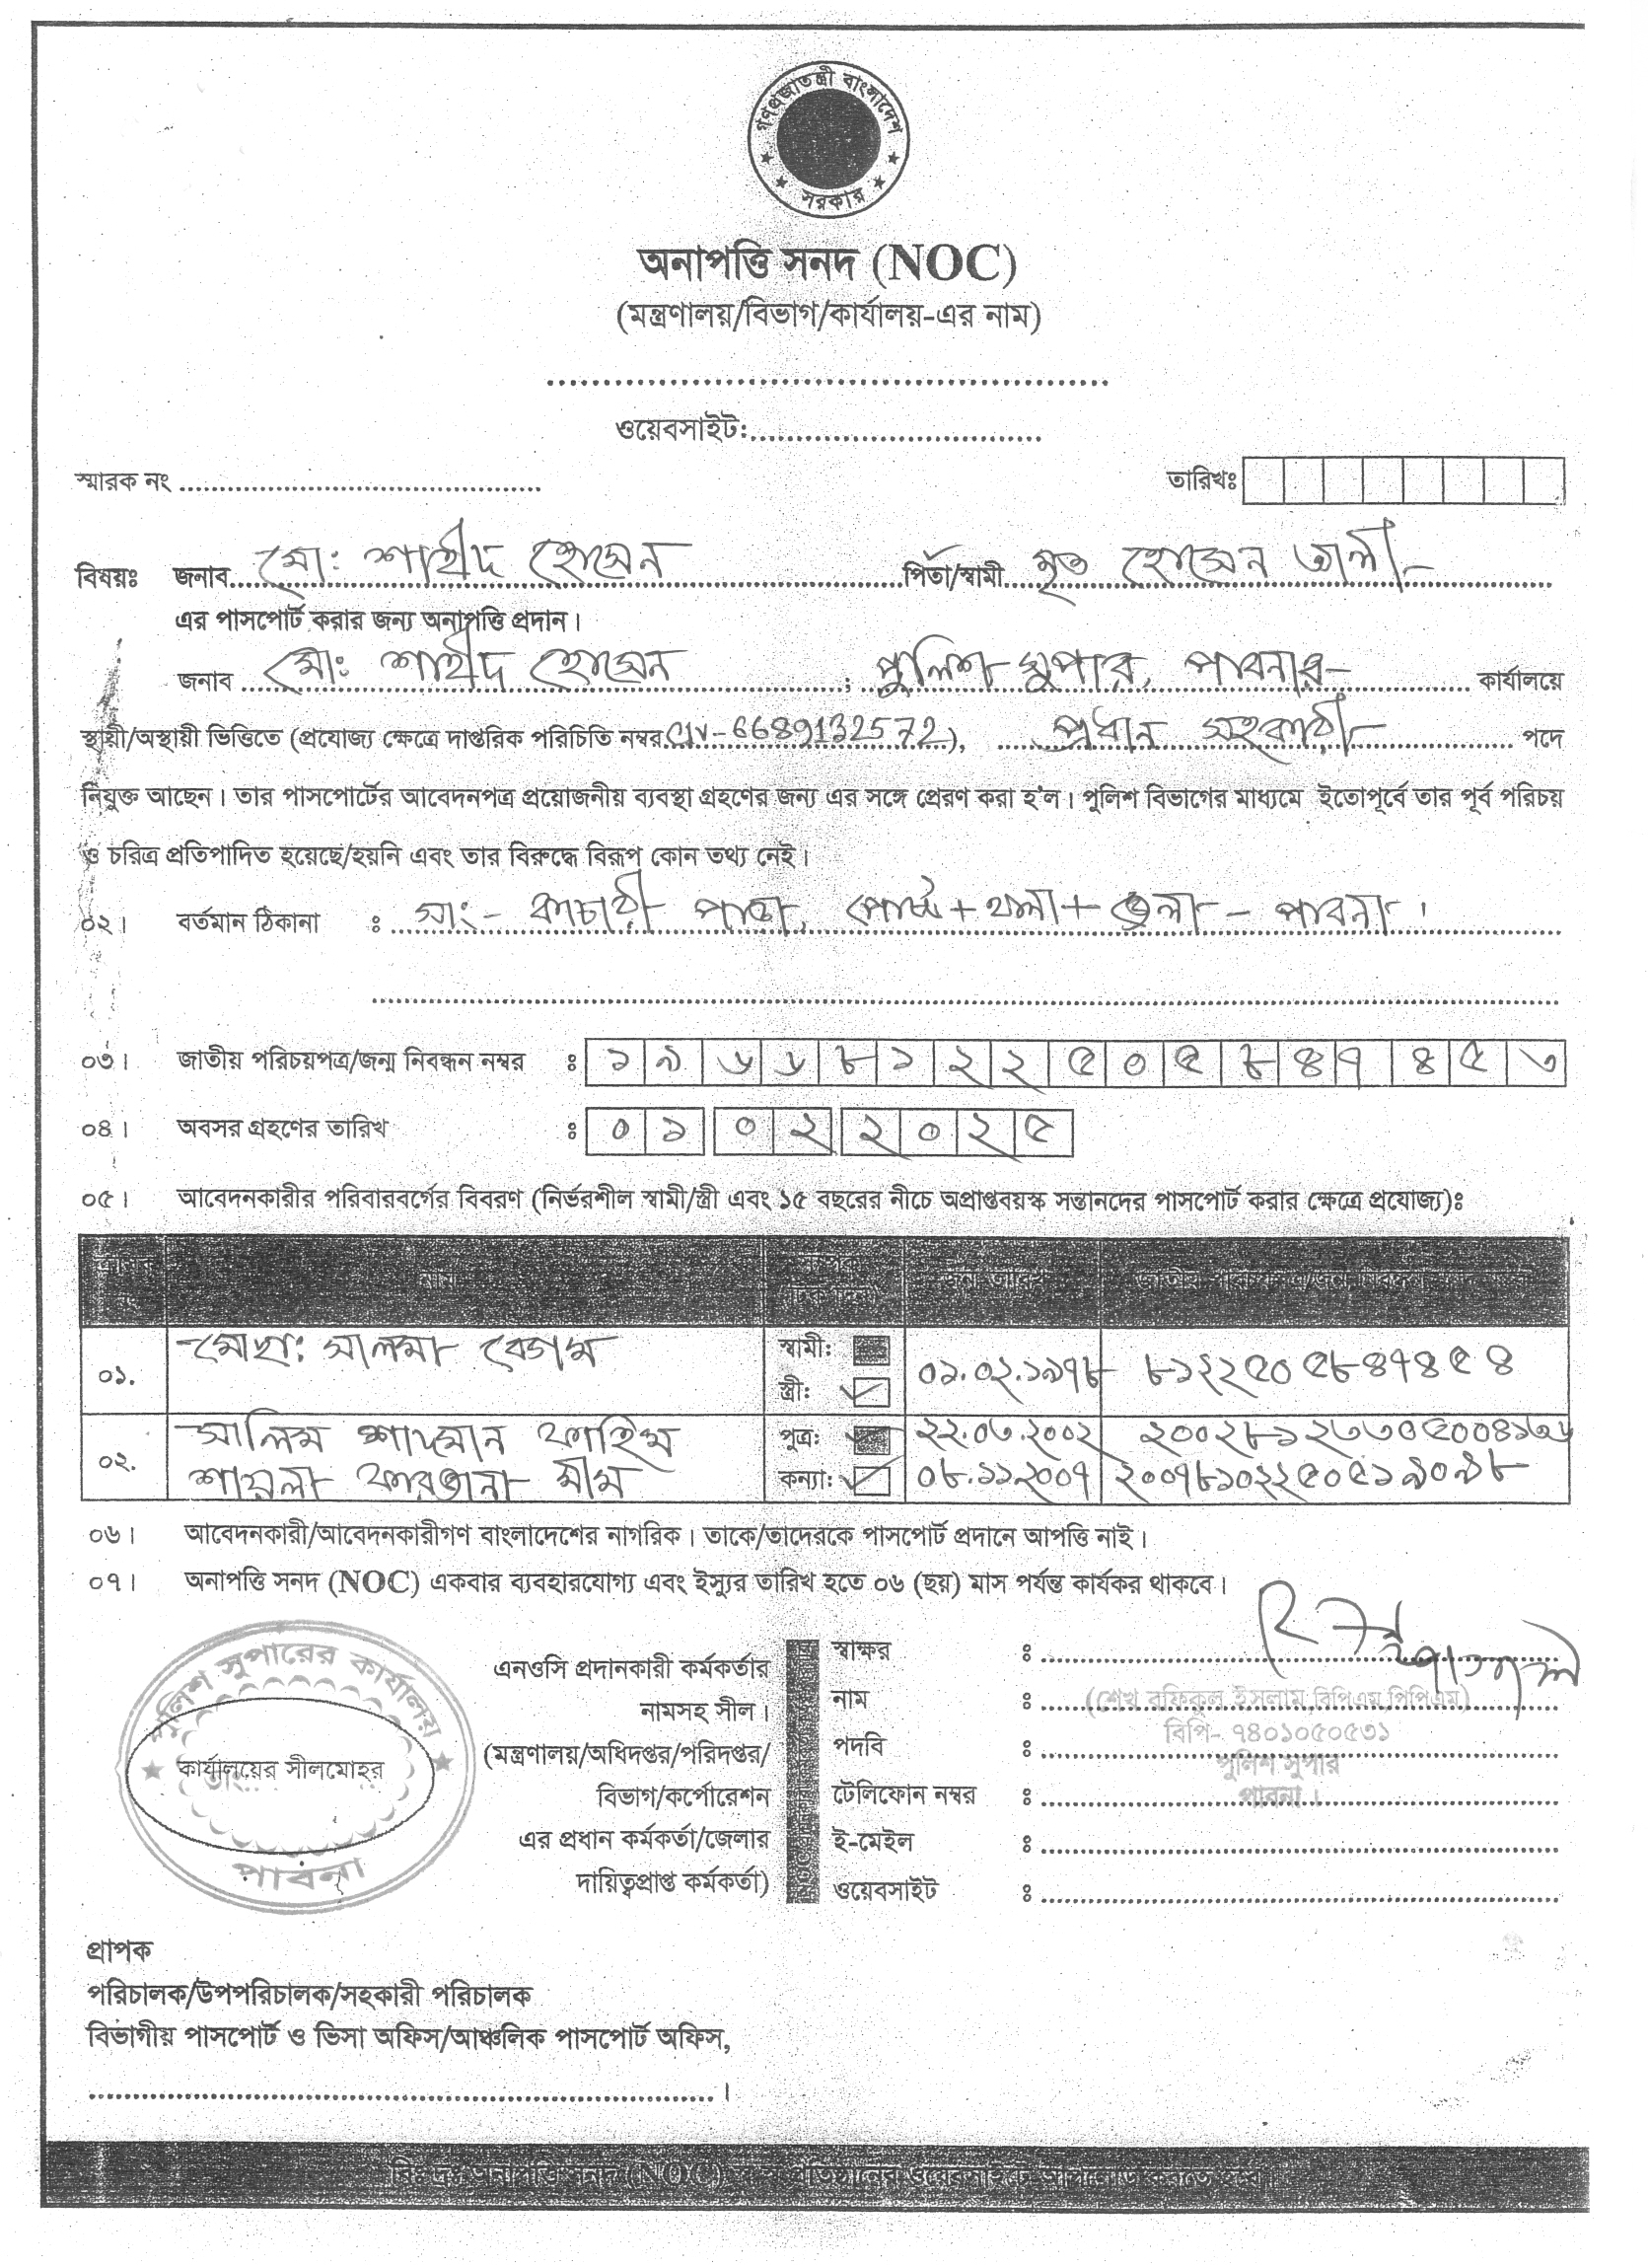 গণপ্রজাতন্ত্রী বাংলাদেশ
সরকার
অনাপত্তি সনদ (NOC)
(মন্ত্রণালয়/বিভাগ/কার্যালয়-এর নাম)
ওয়েবসাইট:
স্মারক নং তারিখঃ
বিষয়ঃ জনাব মোঃ শাহীদ হোসেন পিতা/স্বামী মৃত হোসেন আলী
এর পাসপোর্ট করার জন্য অনাপত্তি প্রদান।
জনাব মোঃ শাহীদ হোসেন ; পুলিশ সুপার, পাবনার কার্যালয়ে
স্থায়ী/অস্থায়ী ভিত্তিতে (প্রযোজ্য ক্ষেত্রে দাপ্তরিক পরিচিতি নম্বর CIV-6689132572), প্রধান সহকারী পদে
নিযুক্ত আছেন। তার পাসপোর্টের আবেদনপত্র প্রয়োজনীয় ব্যবস্থা গ্রহণের জন্য এর সঙ্গে প্রেরণ করা হ'ল। পুলিশ বিভাগের মাধ্যমে ইতোপূর্বে তার পূর্ব পরিচয়
ও চরিত্র প্রতিপাদিত হয়েছে/হয়নি এবং তার বিরুদ্ধে বিরূপ কোন তথ্য নেই।
০২। বর্তমান ঠিকানা ঃ সাং- কাচারী পাড়া, পোষ্ট+থানা+জেলা - পাবনা।
০৩। জাতীয় পরিচয়পত্র/জন্ম নিবন্ধন নম্বর ঃ ১৯৬৬৮১২২৫০৫৮৪৭৪৫৩
০৪। অবসর গ্রহণের তারিখ ঃ ০১ ০২ ২০২৫
০৫। আবেদনকারীর পরিবারবর্গের বিবরণ (নির্ভরশীল স্বামী/স্ত্রী এবং ১৫ বছরের নীচে অপ্রাপ্তবয়স্ক সন্তানদের পাসপোর্ট করার ক্ষেত্রে প্রযোজ্য)ঃ
ক্রমিক নাম জন্ম তারিখ
০১. মোছাঃ সালমা বেগম স্বামী: স্ত্রী: ০১.০২.১৯৭৮ ৮১২২৫০৫৮৪৭৪৫৪
০২. সালিম শাদমান ফাহিম পুত্র: ২২.০৬.২০০২
শায়লা ফারজানা মীম কন্যা: ০৮.১১.২০০৭ ২০০৭৮১০২২৫০৫১৯০৯৮
০৬। আবেদনকারী/আবেদনকারীগণ বাংলাদেশের নাগরিক। তাকে/তাদেরকে পাসপোর্ট প্রদানে আপত্তি নাই।
০৭। অনাপত্তি সনদ (NOC) একবার ব্যবহারযোগ্য এবং ইস্যুর তারিখ হতে ০৬ (ছয়) মাস পর্যন্ত কার্যকর থাকবে।
পুলিশ সুপারের কার্যালয়
কার্যালয়ের সীলমোহর
পাবনা
এনওসি প্রদানকারী কর্মকর্তার
নামসহ সীল।
(মন্ত্রণালয়/অধিদপ্তর/পরিদপ্তর/
বিভাগ/কর্পোরেশন
এর প্রধান কর্মকর্তা/জেলার
দায়িত্বপ্রাপ্ত কর্মকর্তা)
স্বাক্ষর ঃ
নাম ঃ (শেখ রফিকুল ইসলাম বিপিএম,পিপিএম)
বিপি- ৭৪০১০৫০৫৩১
পদবি ঃ পুলিশ সুপার
টেলিফোন নম্বর ঃ পাবনা।
ই-মেইল ঃ
ওয়েবসাইট ঃ
প্রাপক
পরিচালক/উপপরিচালক/সহকারী পরিচালক
বিভাগীয় পাসপোর্ট ও ভিসা অফিস/আঞ্চলিক পাসপোর্ট অফিস,
।
বিঃ দ্রঃ অনাপত্তি সনদ (NOC) প্রতিষ্ঠানের ওয়েবসাইটে আপলোড করতে হবে।